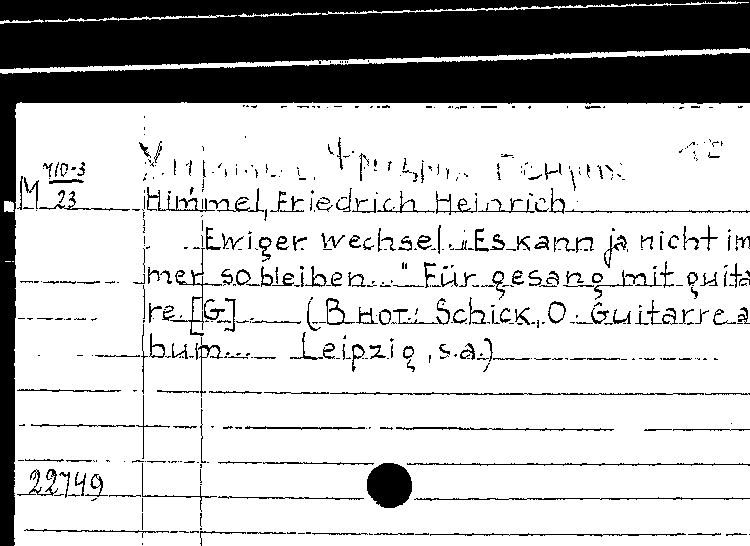 Химмель, Фридрих Генрих 12
М 710-3
23
Himmel, Friedrich Heinrich
Ewiger wechsel. „Es kann ja nicht im
mer so bleiben..." Für gesang mit guita
re. [G] (В нот.: Schick, O. Guitarre a
bum... Leipzig, s.a.)
22749